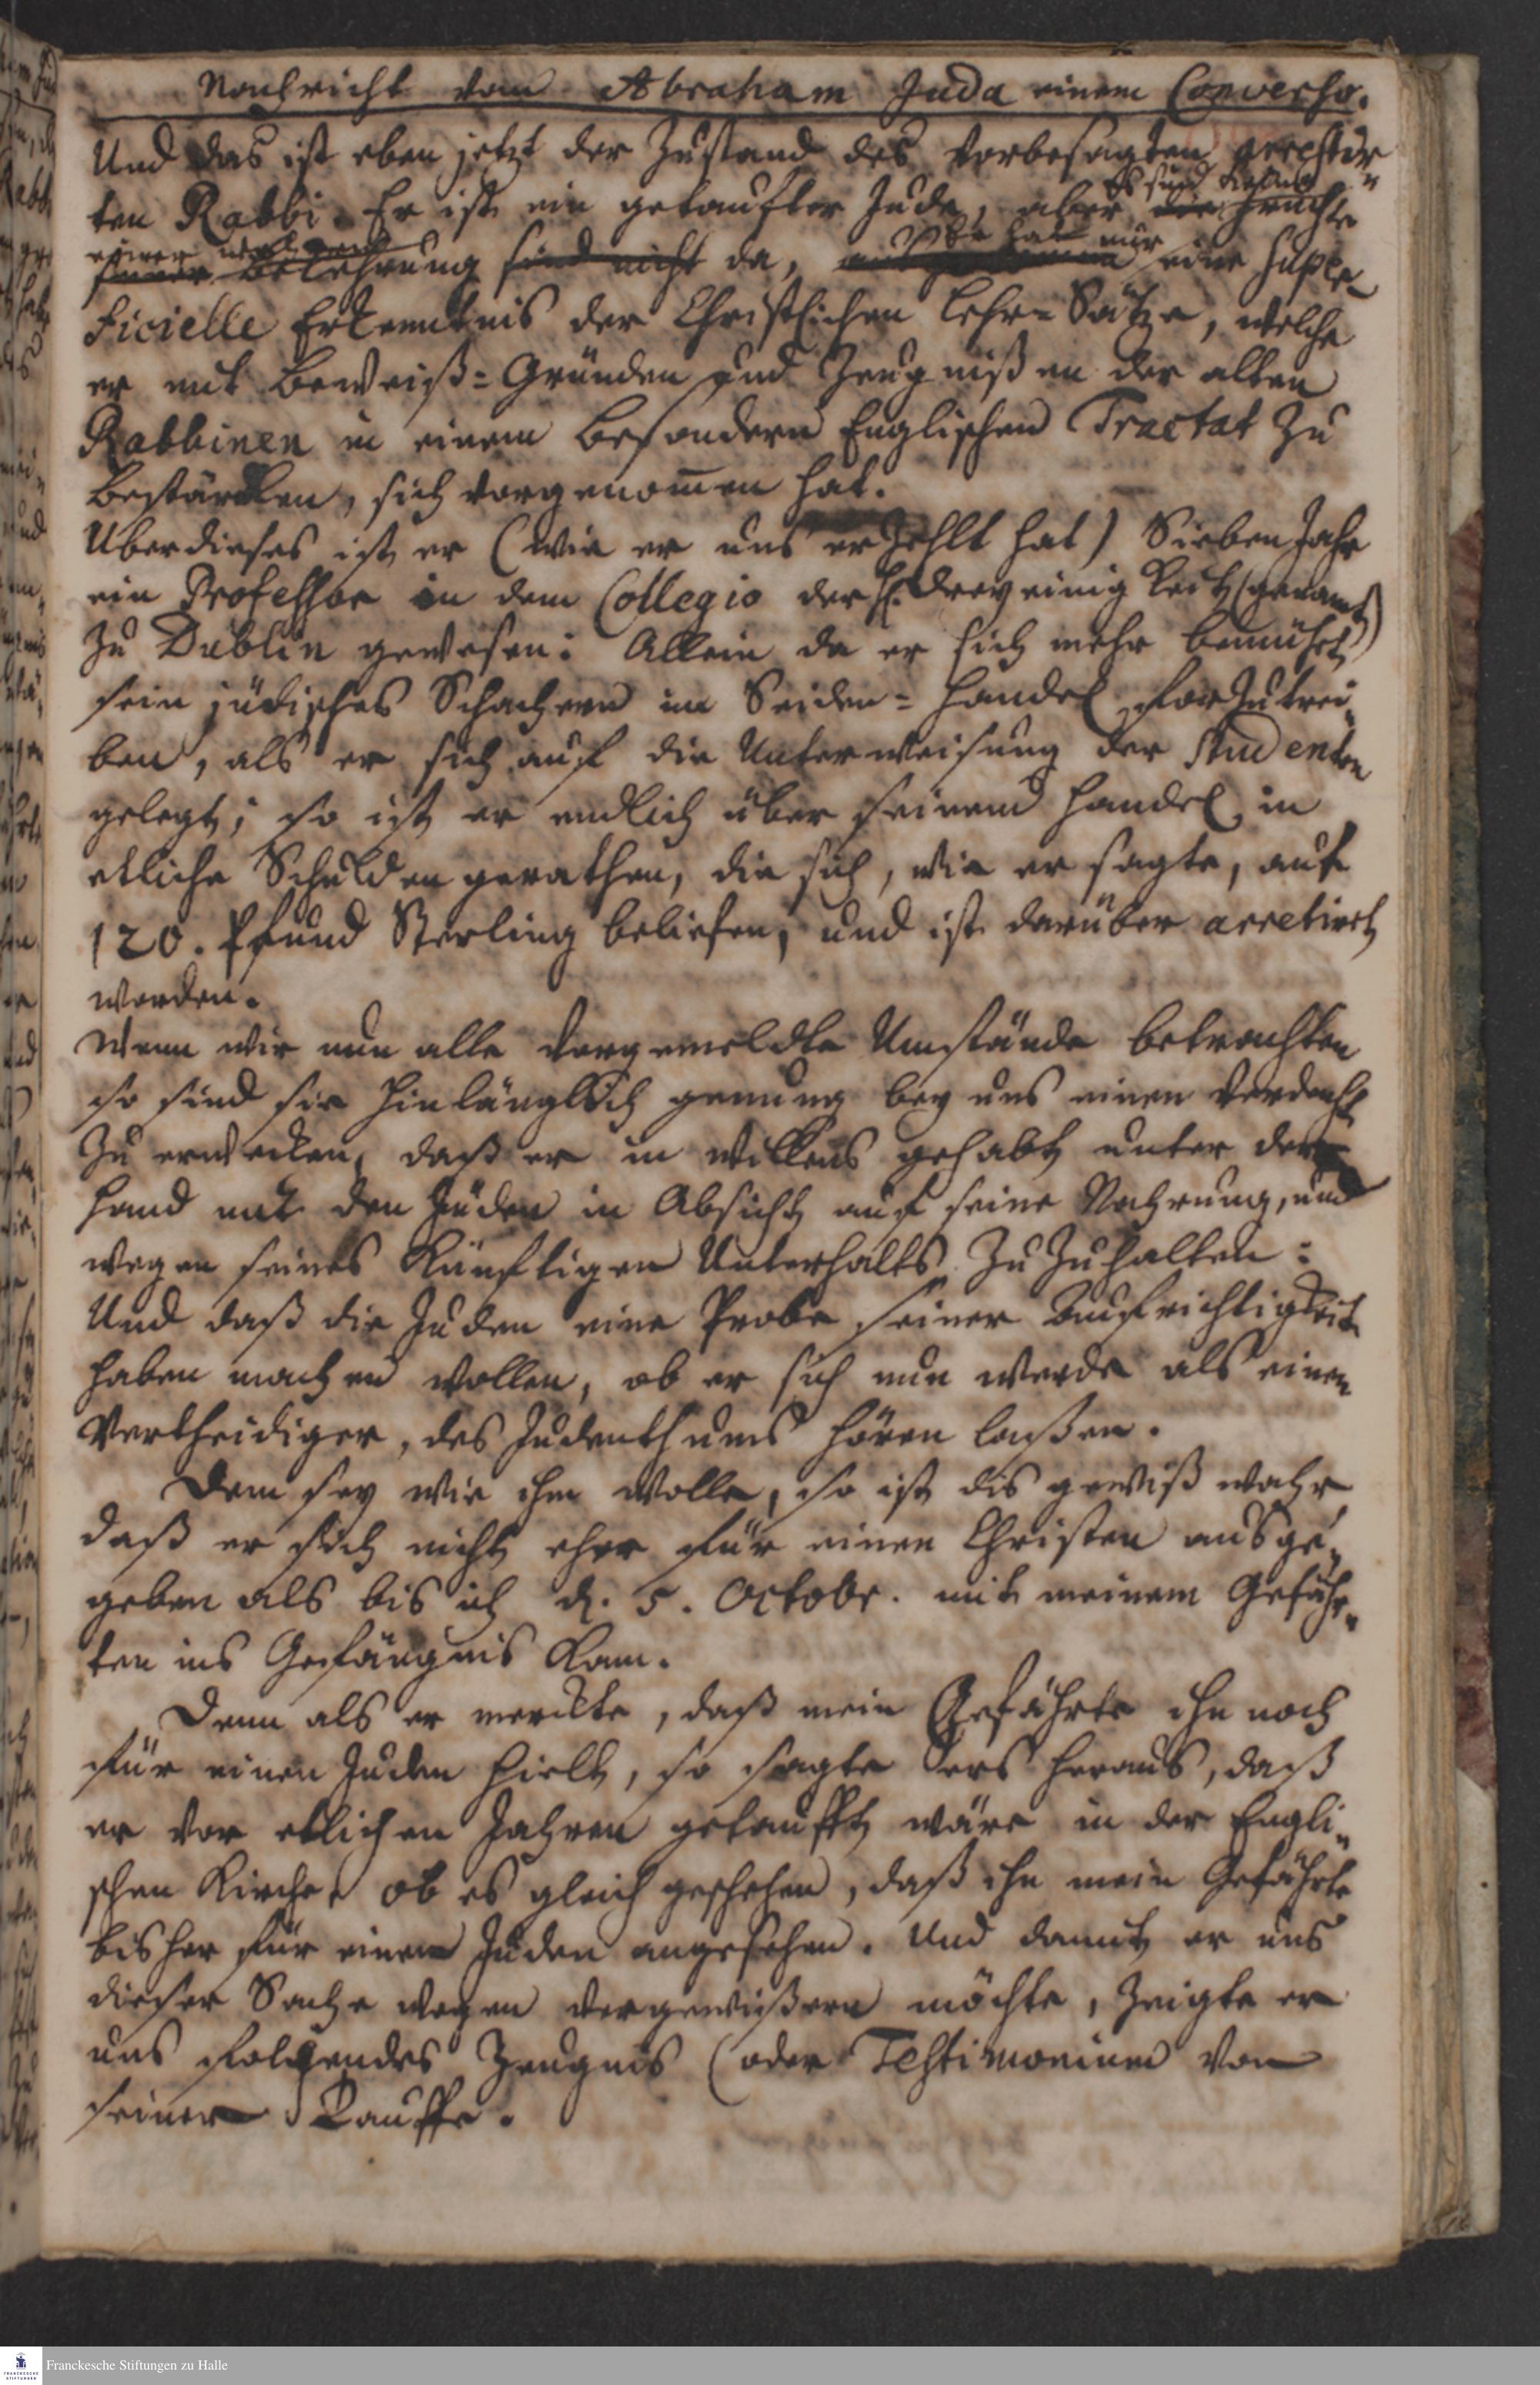 Nachricht von Abraham Juda einem Converso.
Und das ist eben jetzt der Zustand des vorbesagten arrestir„
ten Rabbi. Er ist ein getaufter Jude, aber es sind keine Früchte
einer Bekehrung da, Er hat nur eine super„
ficielle Erkenntnis der Christlichen Lehr-Sätze, welche
er mit Beweiß-Gründen und Zeugnißen der alten
Rabbinen in einem besondern Englischen Tractat zu
bestärcken, sich vorgenom̄en hat.
Uberdieses ist er (wie er uns erzehlt hat) Sieben Jahr
ein Professor in dem Collegio der H. Dreyeinigkeit (genant)
zu Dublin gewesen: Allein da er sich mehr bemüht
sein jüdisches Schachern im Seiden-Handel fortzutrei„
ben, als er sich auf die Unterweisung der Studenten
gelegt; so ist er endlich über seinem Handel in
etliche Schulden gerathen, die sich, wie er sagte, auf
120. Pfund Sterling beliefen, und ist darüber arretirt
worden.
Wenn wir nun alle vorgemeldte Umstände betrachten
so sind sie hinlänglich genung bey uns einen Verdacht
zu erwecken, daß er in willens gehabt unter der
Hand mit den Juden in Absicht auf seine Nahrung, und
wegen seines Künftigen Unterhalts zu zuhalten:
Und daß die Juden eine Probe seiner Aufrichtigkeit
haben machen wollen, ob er sich nun werde als einen
Vertheidiger, des Judenthums hören laßen.
Dem sey wie ihm wolle, so ist dis gewiß wahr
daß er sich nicht eher für einen Christen ausge„
geben als bis ich d. 5. Octobr. mit meinem Gefähr„
ten ins Gefängnis kam.
Denn als er merckte, daß mein Gefährte ihn noch
für einen Juden hielt, so sagte ers heraus, daß
er vor etlichen Jahren getaufft wäre in der Engli„
schen Kirche, ob es gleich geschehen, daß ihn mein Gefährte
bisher für einen Juden angesehen. Und damit er uns
dieser Sache wegen vergewißern möchte, zeigte er
uns folgendes Zeugnis (oder Testimonium von
seiner Tauffe.
Franckesche Stiftungen zu Halle